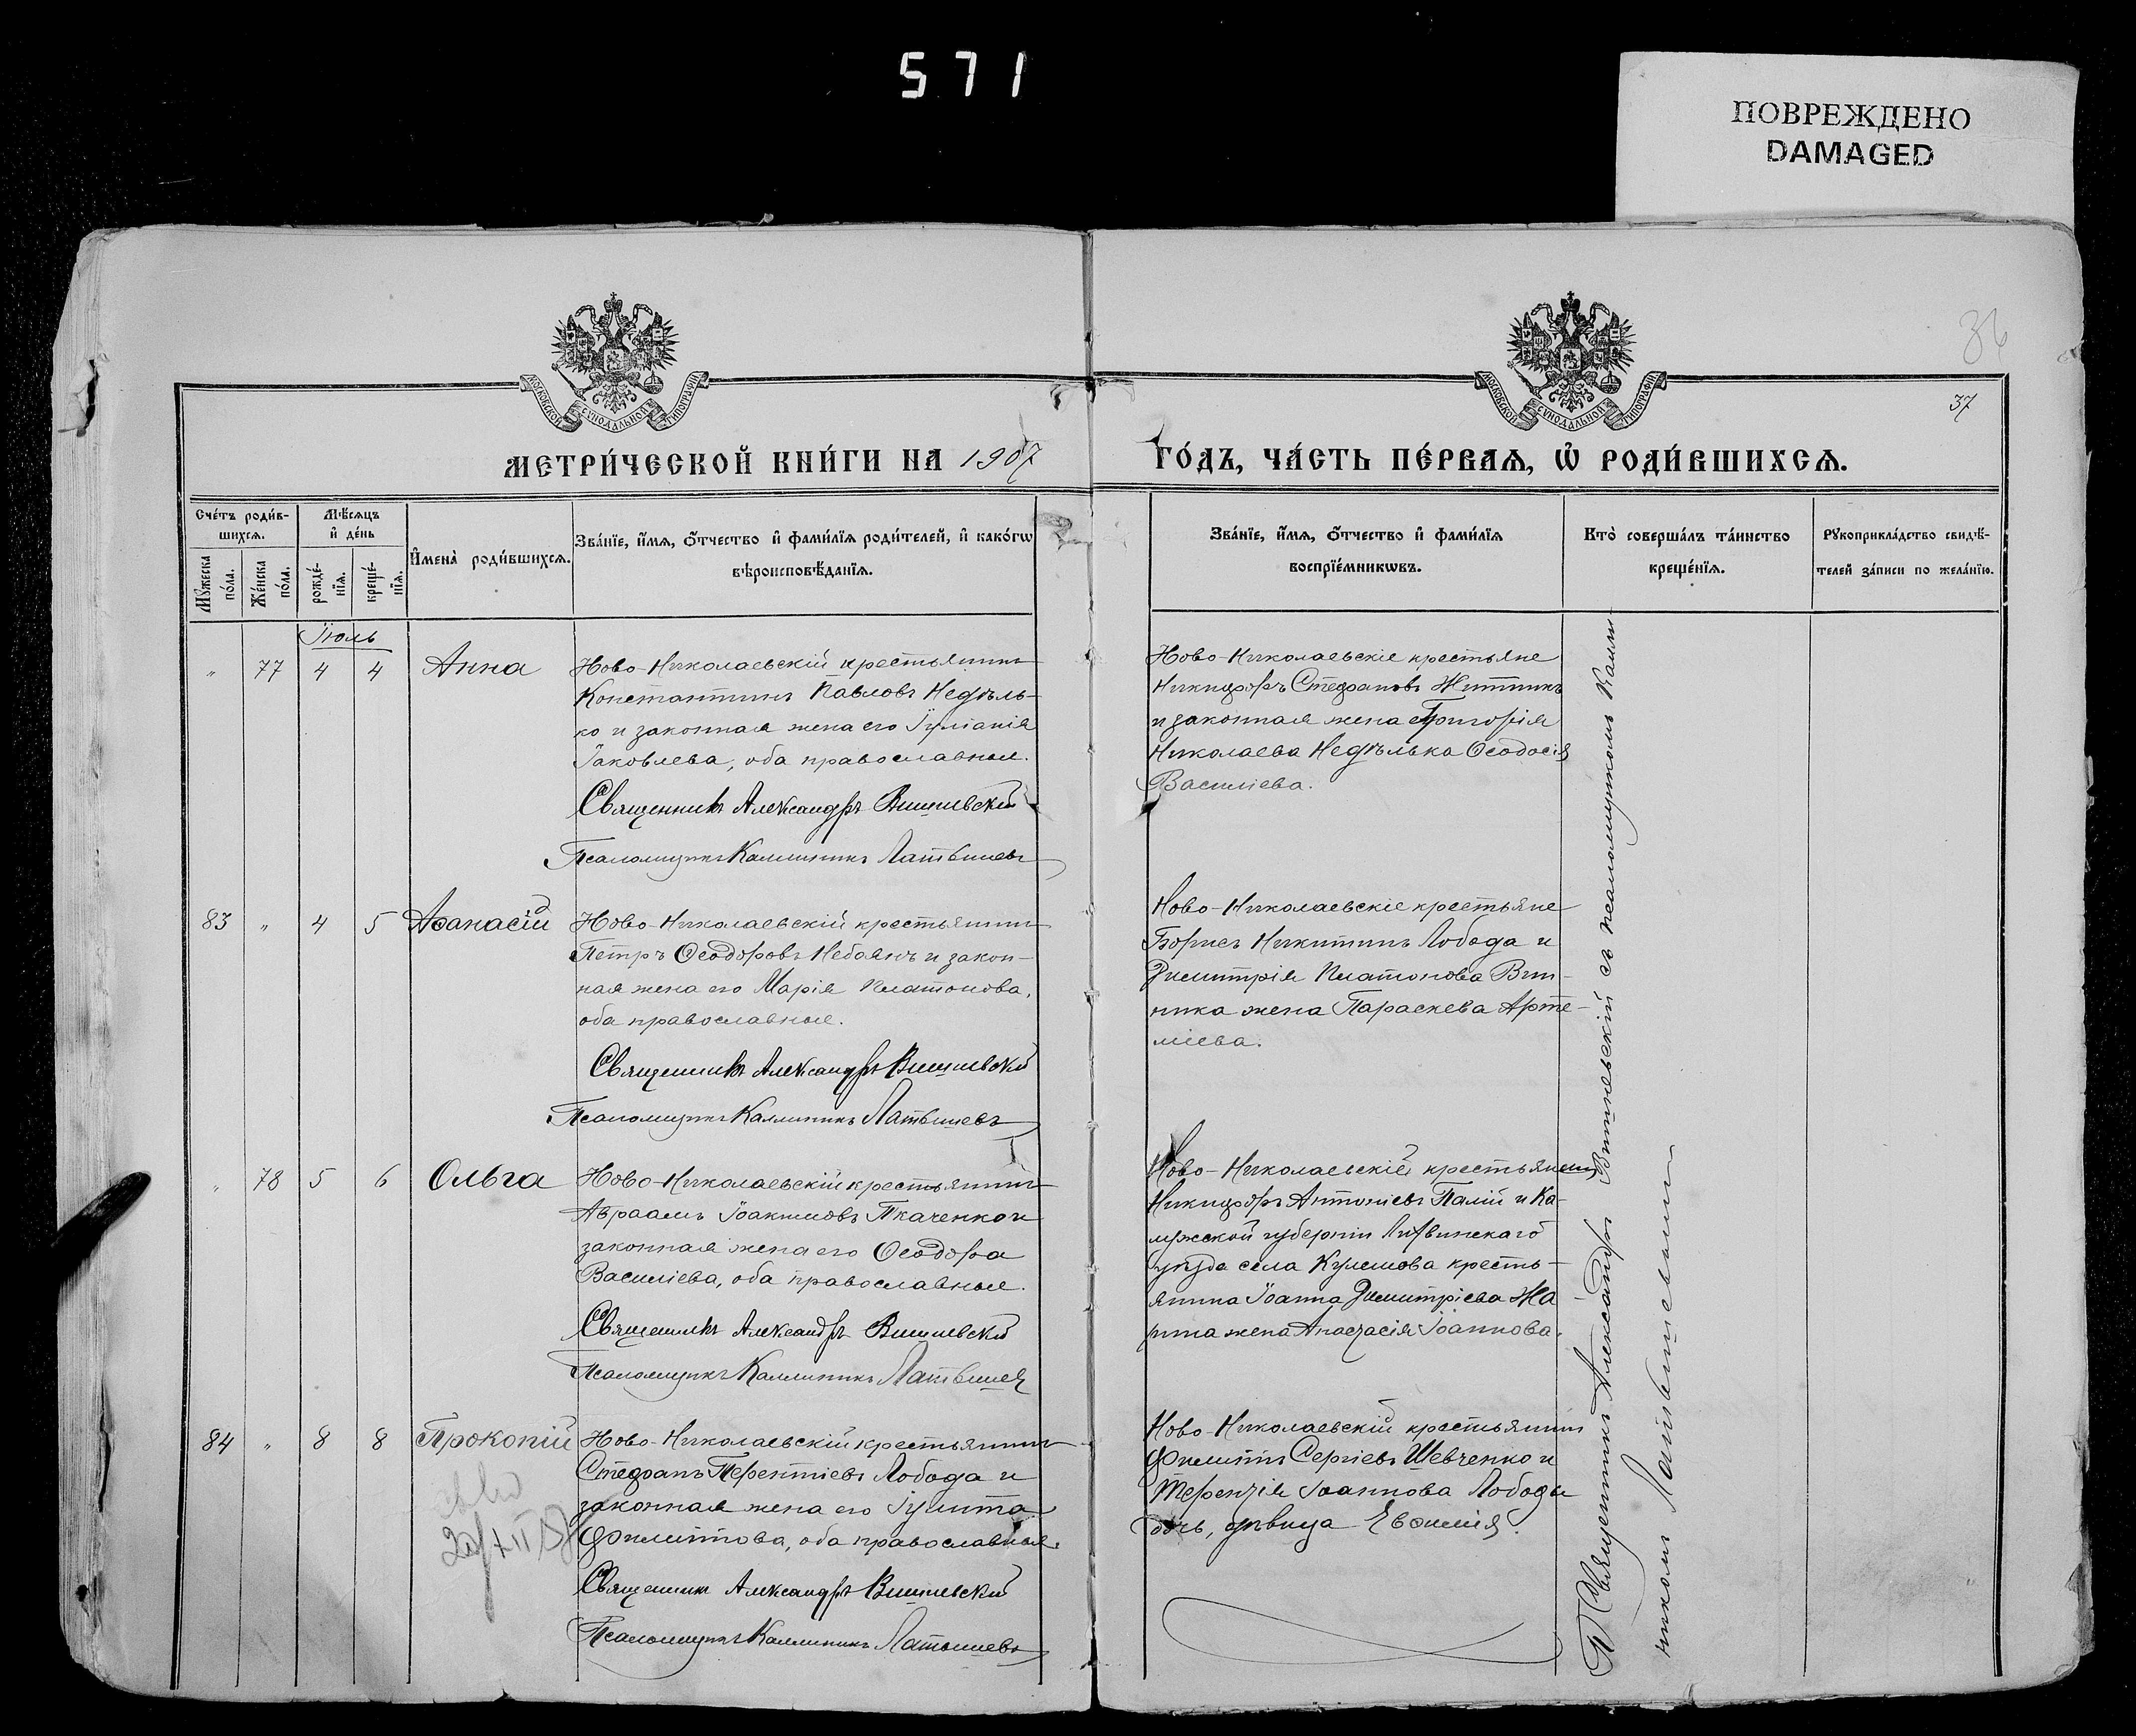 571
ПОВРЕЖДЕНО
DAMAGED
36
37
МОСКОВСКОЙ СѴНОДАЛЬНОЙ ТИПОГРАФІИ
МОСКОВСКОЙ СѴНОДАЛЬНОЙ ТИПОГРАФІИ
МЕТРИ́ЧЕСКОЙ КНИ́ГИ НА 1907
ГО́ДЪ, ЧА́СТЬ ПЕ́РВАѦ, Ѡ҆ РОДИ́ВШИХСѦ.
Сче́тъ роди́в-
шихсѧ.
Мꙋ́жеска
по́ла.
Же́нска
по́ла.
Мѣ́сѧцъ
и҆ де́нь
рожде́-
нїѧ.
креще́-
нїѧ.
И҆мена̀ роди́вшихсѧ.
Зва́нїе, и҆́мѧ, ѻ҆́тчество и҆ фами́лїѧ роди́телей, и҆ како́гѡ
вѣроисповѣ́данїѧ.
Зва́нїе, и҆́мѧ, ѻ҆́тчество и҆ фами́лїѧ
воспрїе́мникѡвъ.
Кто̀ соверша́лъ та́инство
креще́нїѧ.
Рꙋкоприкла́дство свидѣ́-
телей за́писи по жела́нїю.
Іюль
" 77 4 4 Анна
Ново-Николаевскій крестьянинъ
Константинъ Павловъ Недѣль-
ко и законная жена его Іуліанія
Іаковлева, оба православные.
Священникъ Александръ Вишневскій
Псаломщикъ Каллиникъ Латышевъ
Ново-Николаевскіе крестьяне
Никифоръ Стефановъ Житникъ
и законная жена Григорія
Николаева Недѣлька Ѳеодосія
Василіева.
83 " 4 5 Аѳанасій
Ново-Николаевскій крестьянинъ
Петръ Ѳеодоровъ Небаянъ и закон-
ная жена его Марія Платонова,
оба православные.
Священникъ Александръ Вишневскій
Псаломщикъ Каллиникъ Латышевъ
Ново-Николаевскіе крестьяне
Борисъ Никитинъ Лобода и
Димитрія Платонова Вин-
ника жена Параскева Арте-
міева.
" 78 5 6 Ольга
Ново-Николаевскій крестьянинъ
Авраамъ Іоакимовъ Ткаченко и
законная жена его Ѳеодора
Василіева, оба православные.
Священникъ Александръ Вишневскій
Псаломщикъ Каллиникъ Латышевъ
Ново-Николаевскій крестьянинъ
Никифоръ Антоніевъ Палій и Ка-
лужской губерніи Лихвинскаго
уѣзда села Кулешова кресть-
янина Іоанна Димитріева Жа-
рина жена Анастасія Іоаннова.
84 " 8 8 Прокопій
Ново-Николаевскій крестьянинъ
Стефанъ Терентіевъ Лобода и
законная жена его Іулитта
Филиппова, оба православные.
Священникъ Александръ Вишневскій
Псаломщикъ Каллиникъ Латышевъ
Ново-Николаевскій крестьянинъ
Филиппъ Сергіевъ Шевченко и
Терентія Іоаннова Лободы
дочь, дѣвица Евѳимія.
Священникъ Александръ Вишневскій съ псаломщикомъ Калли-
никомъ Латышевымъ